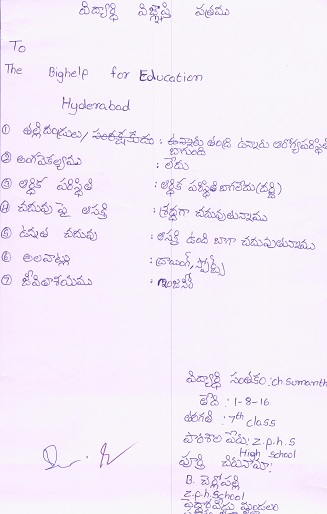 విద్యార్థి విజ్ఞప్తి పత్రము
To
The Bighelp for Education
Hyderabad
① తల్లిదండ్రులు/ సంరక్షకుడు : ఉన్నారు తండ్రి ఉన్నారు ఆరోగ్యపరిస్థితి బాగుంది
② అంగవైకల్యము : లేదు
③ ఆర్థిక పరిస్థితి : ఆర్థిక పరిస్థితి బాగలేదు
④ చదువు పై ఆసక్తి : శ్రద్ధగా చదువుతున్నాము
⑤ ఉన్నత చదువు : ఆసక్తి ఉంది బాగా చదువుతున్నాము
⑥ అలవాట్లు : డ్రాయింగ్, స్పోర్ట్స్
⑦ జీవితాశయము : ఇంజనీర్
విద్యార్థి సంతకం : ch.Sumanth
తేది : 1-8-16
తరగతి : 7th class
పాఠశాల పేరు : Z.p.h.s
High school
పూర్తి చిరునామా :
B.
Z.p.h.School
మండలం